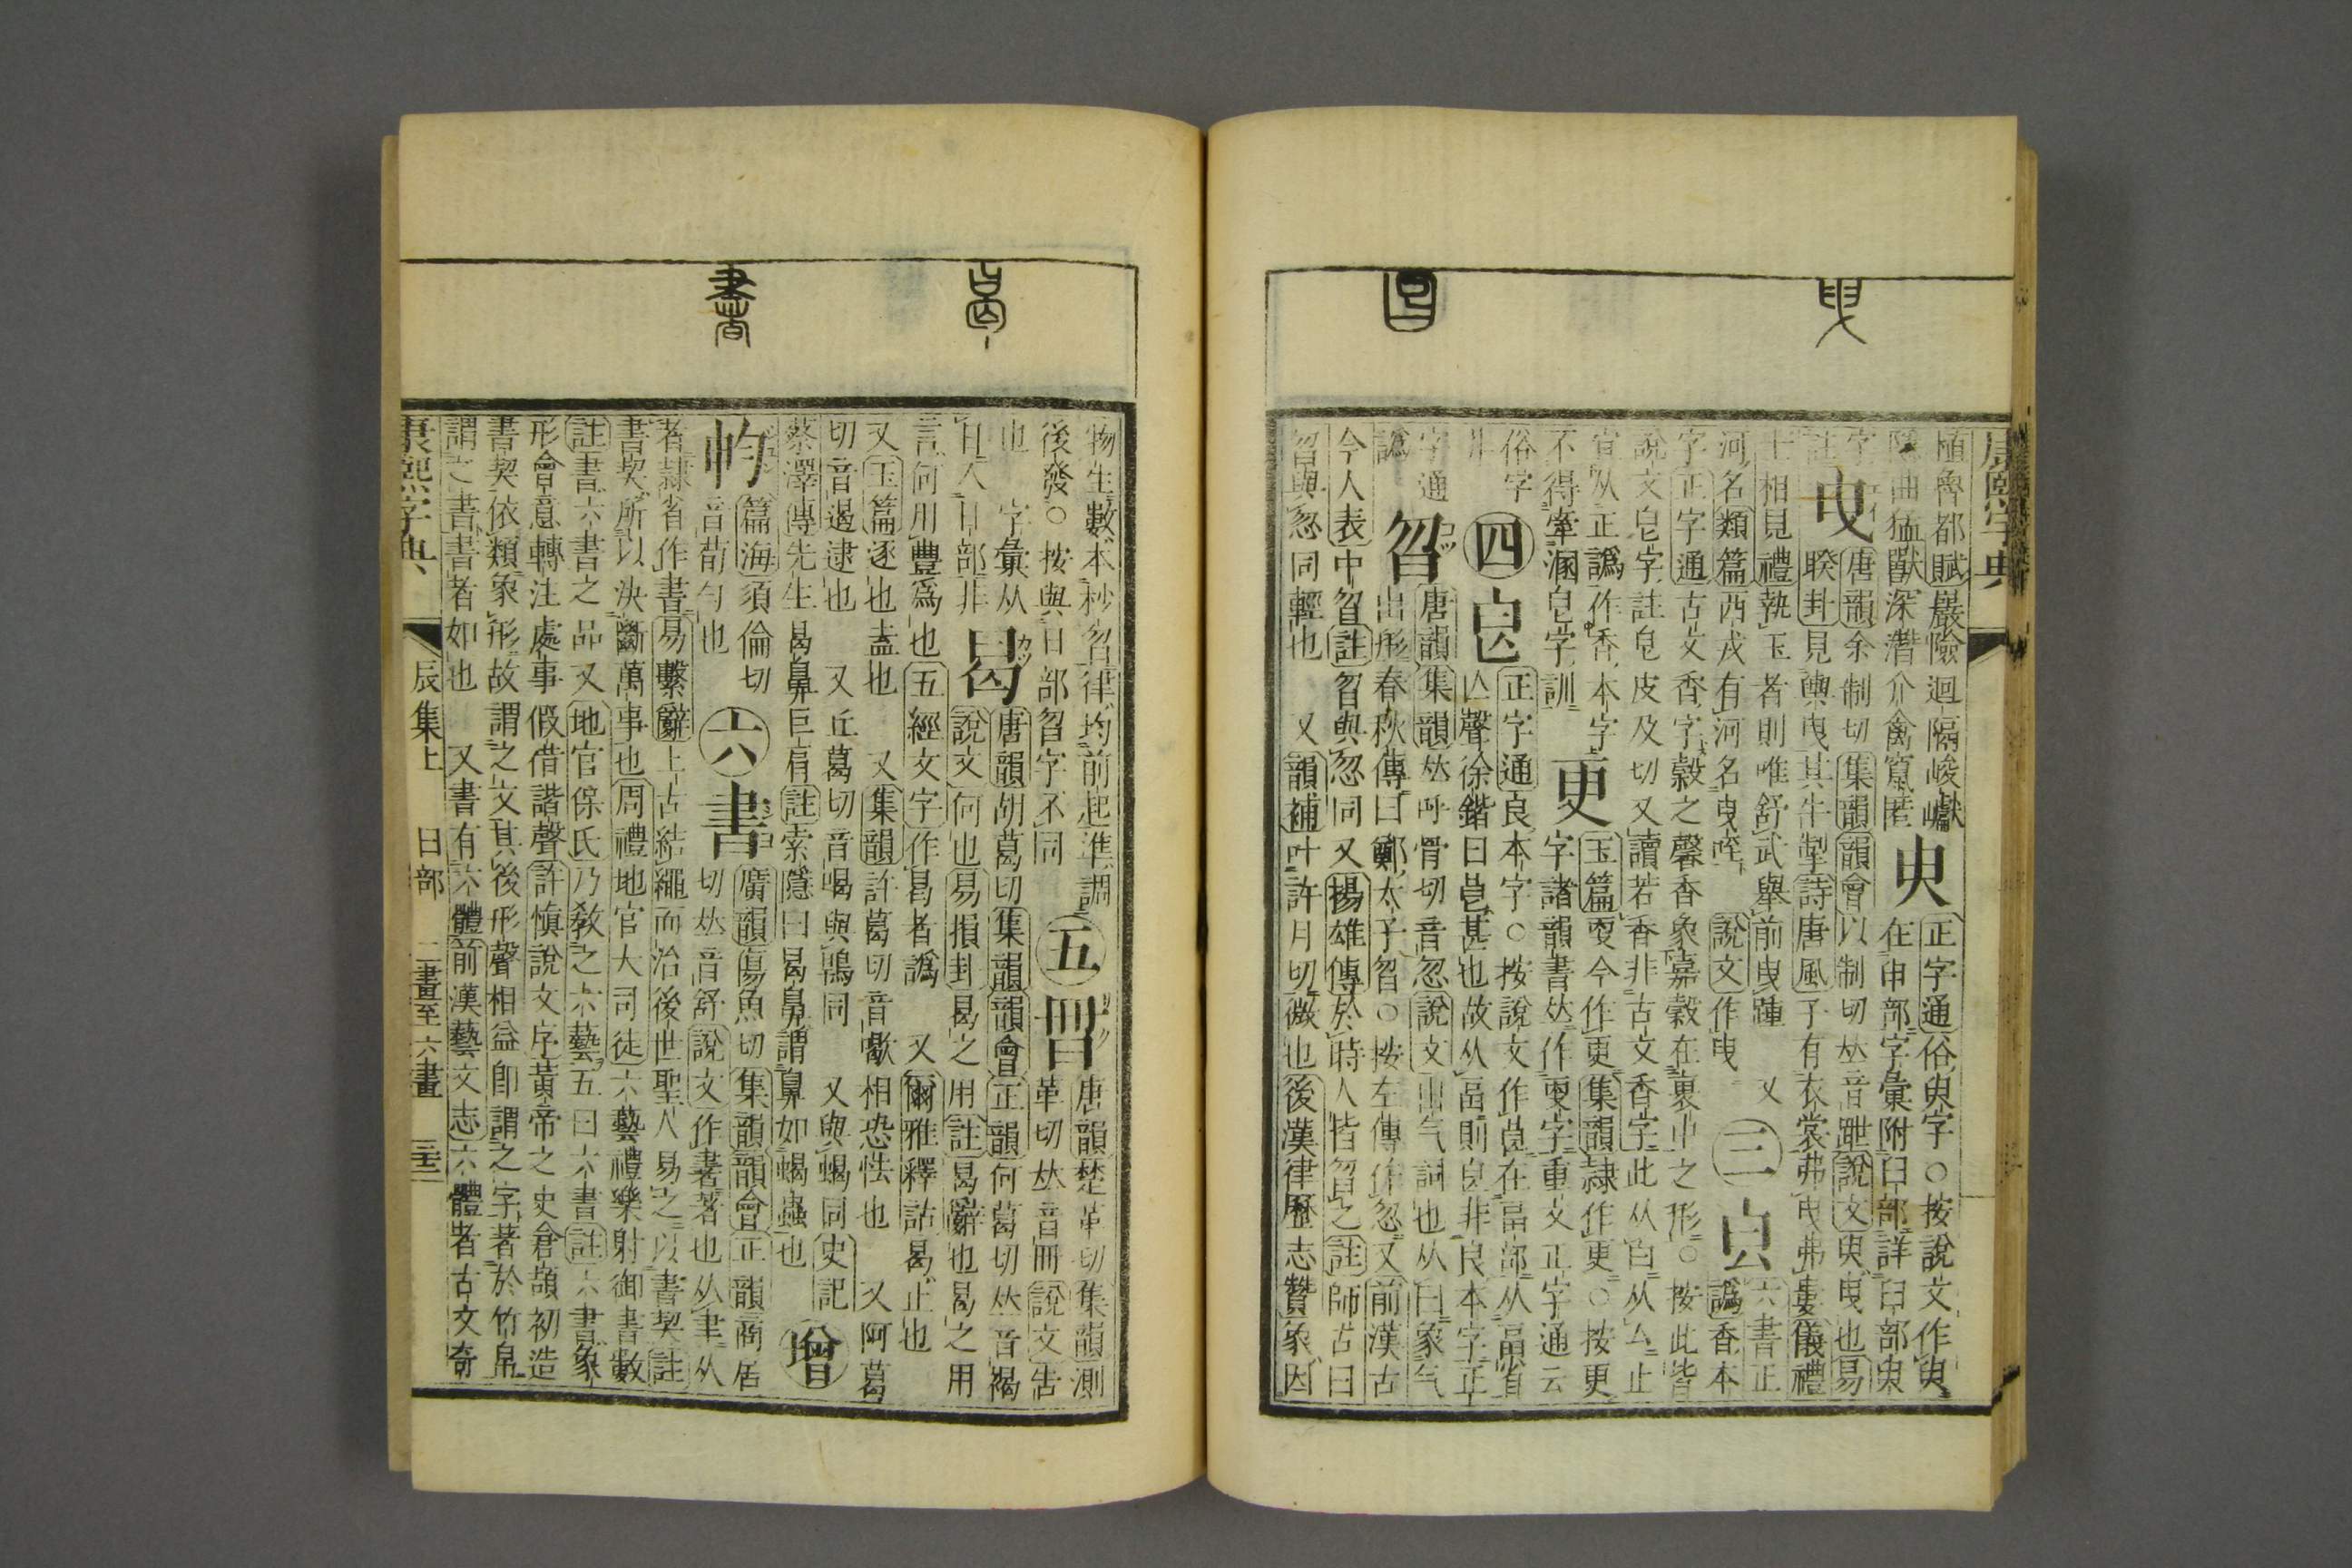 康熙字典
植魯都賦巖險迴隔峻巘
隱曲猛獸深潛介禽竄匿
臾
正字通俗臾字○按說文作臾
在申部字彙附臼部詳臼部臾
字
註
曳
唐韻余制切集韻韻會以制切𠀤音跇說文臾曳也易
睽卦見輿曳其牛掣詩唐風子有衣裳弗曳弗婁儀禮
士相見禮執玉者則唯舒武舉前曳踵 又
河名類篇西戎有河名曳咥 說文作曳
三
六書正
譌香本
字正字通古文香字穀之馨香象嘉穀在裏中之形○按此皆
說文皀字註皀皮及切又讀若香非古文香字此从白从亼止
宜从正譌作香本字
不得牽溷皀字訓
更
玉篇㪅今作更集韻隷作更○按更
字諸韻書𠀤作㪅字重文正字通云
俗字
非
四
㫐
正字通良本字○按說文作𥃩在畗部从畗省
亾聲徐鍇曰𥃩甚也故从畗則皀非良本字正
字通
譌
曶
唐韻集韻𠀤呼骨切音忽說文出气詞也从曰象气
出形春秋傳曰鄭太子曶○按左傳作忽又前漢古
今人表中曶註曶與忽同又揚雄傳於時人皆曶之註師古曰
曶與忽同輕也 又韻補叶許月切微也後漢律歷志贊象因
物生數本秒曶律均前起準調
後發○按與日部曶字不同
五
唐韻楚革切集韻測
革切𠀤音冊說文告
也 字彙从
曰入日部非
曷
唐韻胡葛切集韻韻會正韻何葛切𠀤音褐
說文何也易損卦曷之用註曷辭也曷之用
言何用豐爲也五經文字作曷者譌 又爾雅釋詁曷止也
又玉篇逐也盍也 又集韻許葛切音歇相恐怯也 又阿葛
切音遏逮也 又丘葛切音嵑與鶡同 又與蝎同史記
蔡澤傳先生曷鼻巨肩註索隱曰曷鼻謂鼻如蝎蟲也
增
篇海須倫切
音荀匀也
六
書
廣韻傷魚切集韻韻會正韻商居
切𠀤音舒說文作書著也从聿从
者隷省作書易繫辭上古結繩而治後世聖人易之以書契註
書契所以決斷萬事也周禮地官大司徒六藝禮樂射御書數
註書六書之品又地官保氏乃敎之六藝五曰六書註六書象
形會意轉注處事假借諧聲許愼說文序黃帝之史倉頡初造
書契依類象形故謂之文其後形聲相益卽謂之字著於竹帛
謂之書書者如也 又書有六體前漢藝文志六體者古文奇
康熙字典 辰集上 日部 二畫至六畫